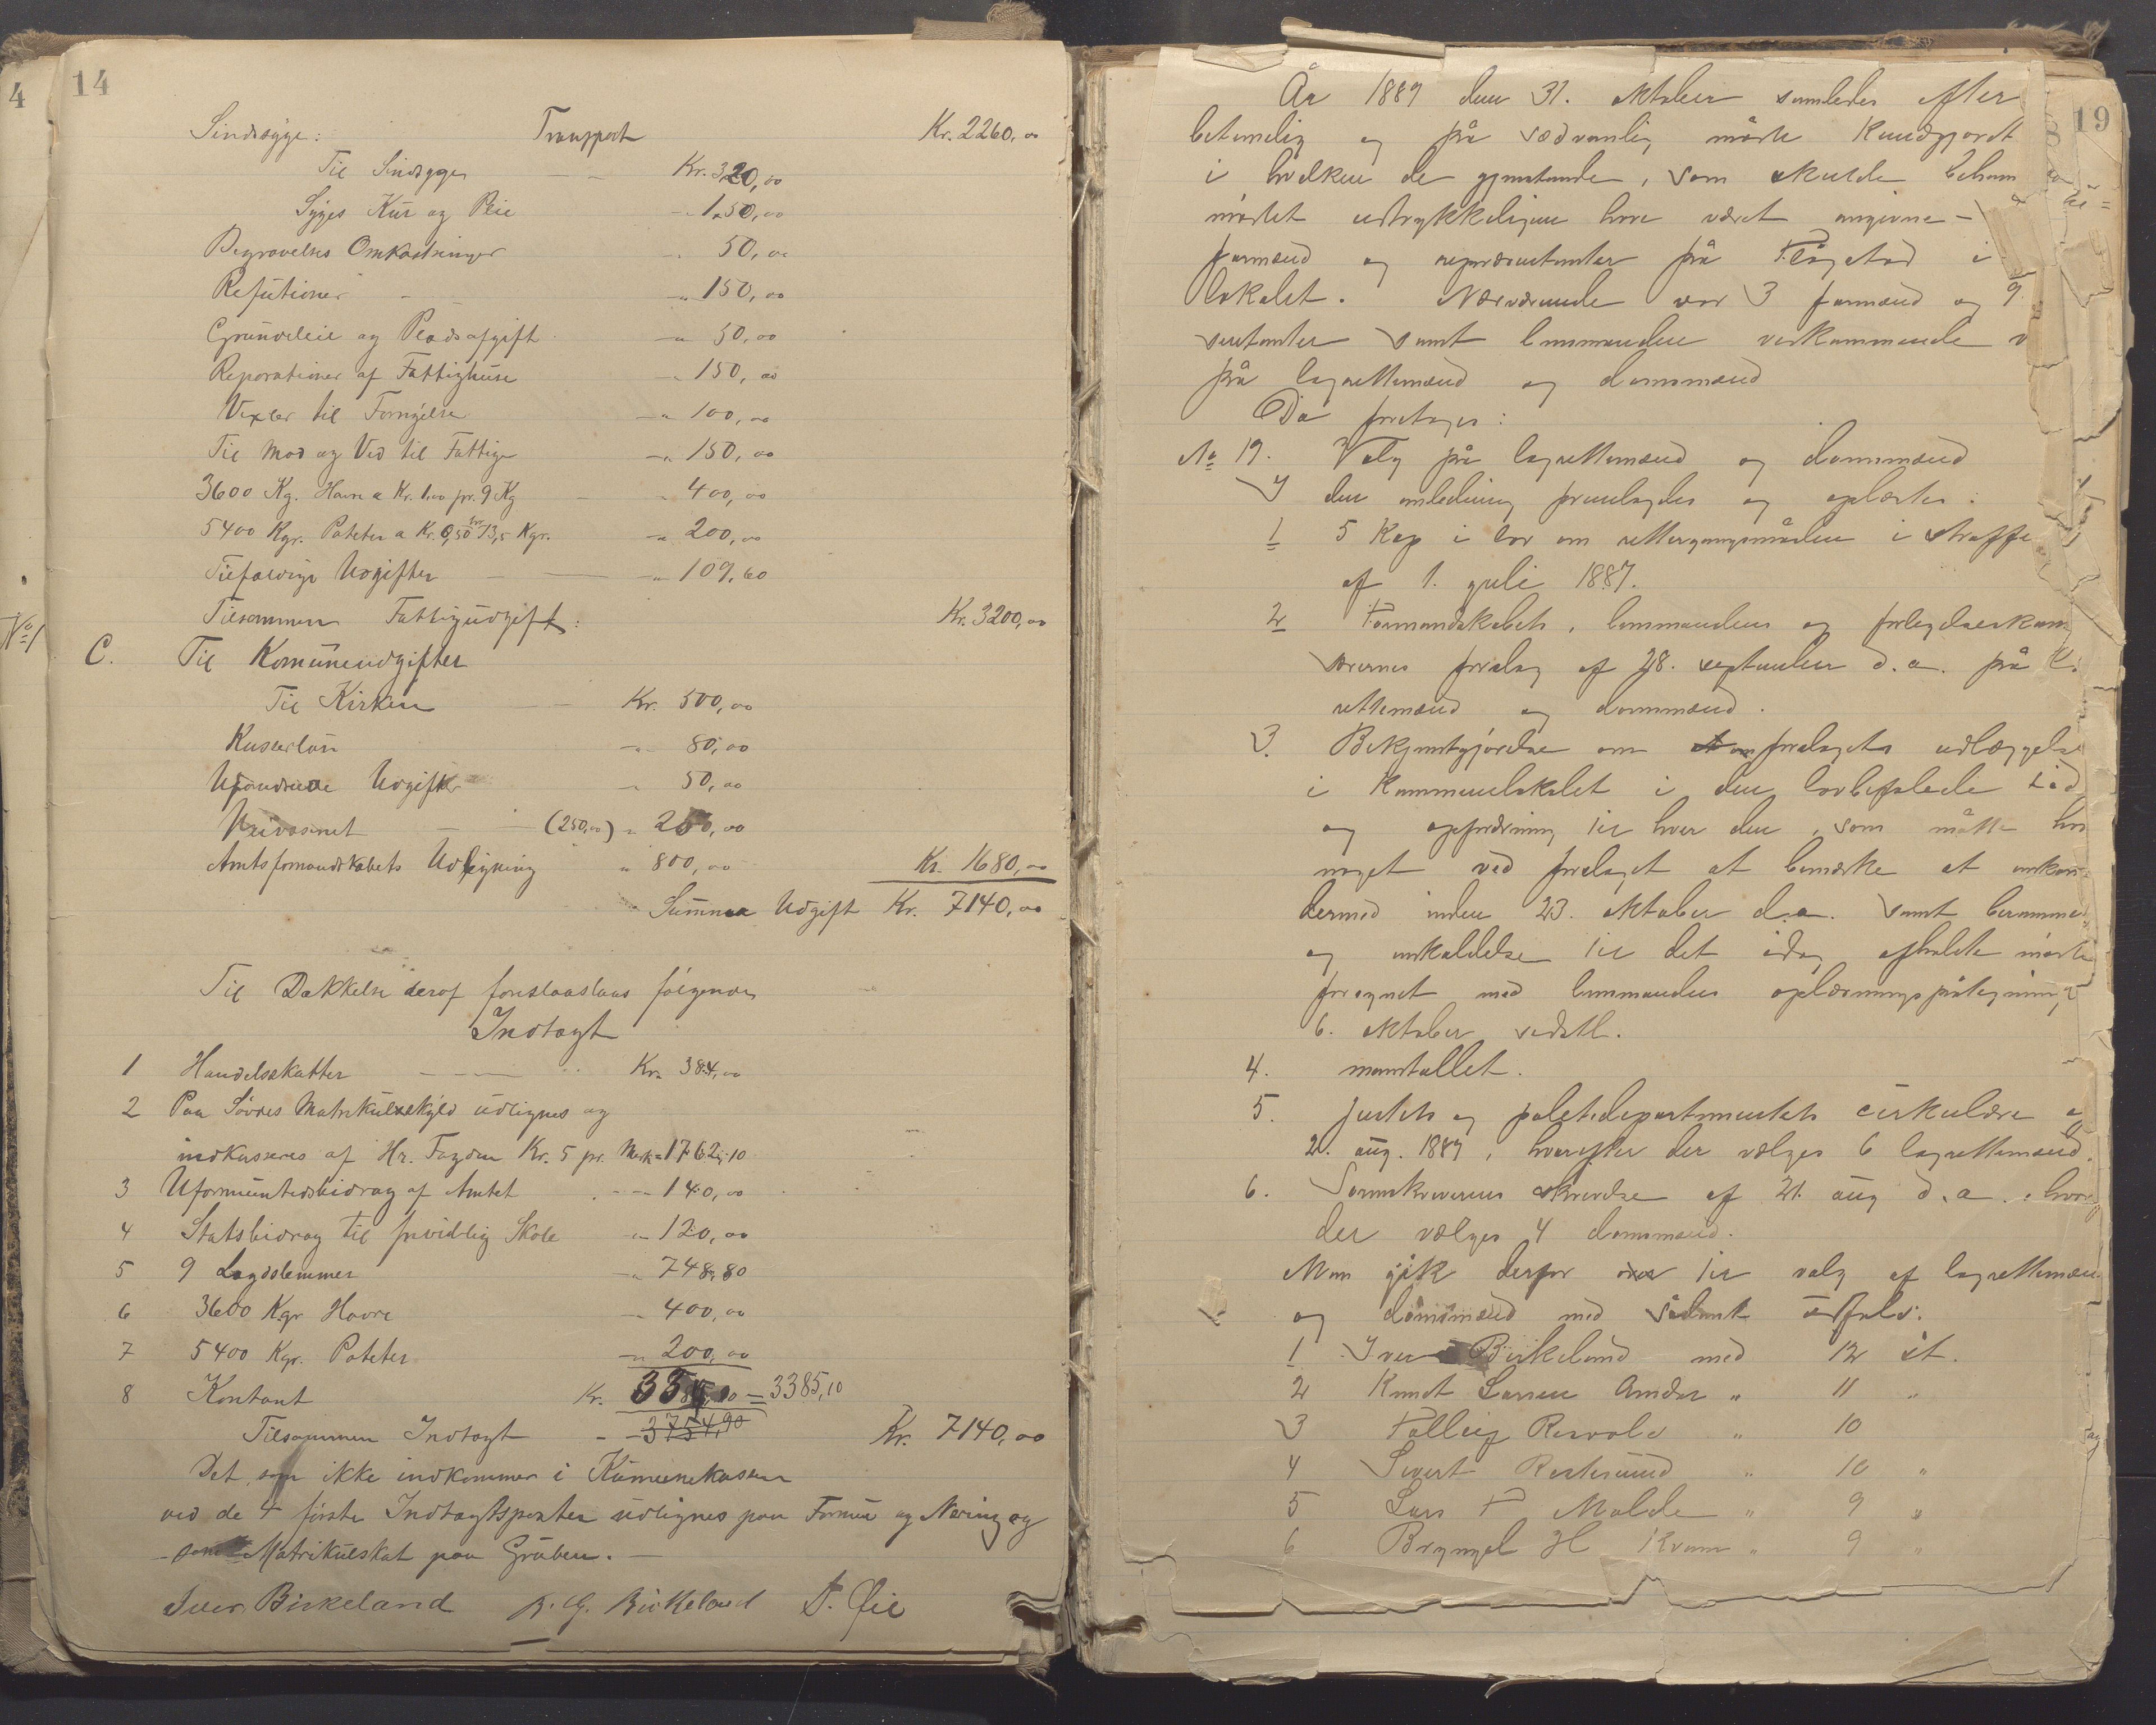 4
14
Sindssyge: Transport Kr. 2260,00
Til Sindsyge Kr. 320,00
Syges Kur og Pleie - 150,00
Begravelses Omkostninger - 50,00
Refutioner - 150,00
Grundleie og Pladsafgift - 50,00
Reporationer af Fattighuse - 150,00
Vexler til Fornyelse - 100,00
Til Mad og Ved til Fattige - 150,00
3600 Kg. Havre a Kr. 1,00 pr. 9 Kg - 400,00
5400 Kgr. Poteter a Kr. 0,50 pr 13,5 Kgr. - 200,00
Tilfældige Udgifter - 109,60
Tilsammen Fattigudgift: Kr. 3200,00
No 1
C. Til Komuneudgifter
Til Kirken Kr. 500,00
Kasserløn - 80,00
Uforudseede Udgifter - 50,00
(250,00) - 250,00
Amtsformandskabets Udligning " 800,00 Kr. 1680,00
Summa Udgift Kr. 7140,00
Til Dækkelse deraf foreslaaslaas følgende
Indtægt
1 Handelsskatter Kr. 384,00
2 Paa Matrikulskyld udlignes og
indkasseres af Hr. Fogden Kr. 5 pr. Mark = 1762,10
3 af Amtet - 140,00
4 Statsbidrag til frivillig Skole - 120,00
5 9 Lægdslemmer - 748,80
6 3600 Kgr Havre - 400,00
7 5400 Kgr. Poteter - 200,00
8 Kontant Kr. = 3385,10
Tilsammen Indtægt - 3754,90 Kr. 7140,00
Det som ikke indkommer i Kommunekassen
ved de 4 første Indtægtsposter udlignes paa Formue og Næring og
samt Matrikulskat paa Gruben.
Iver Birkeland B. G. Birkeland T. Øie
19
År 1889 den 31. oktober samledes efter
betimelig og på sædvanlig måde kundgjordt
i hvilken de gjenstande, som skulde behan
mødet udtrykkeligen have været angivne -
formænd og repræsentanter på i
lokalet. Nærværende var 3 formænd og 9
sentanter samt lensmanden vedkommende v
på lagrettemænd og domsmænd
Da foretoges:
No 19. Valg på lagrettemænd og domsmænd
I den anledning fremlagdes og oplæstes:
1 5 Kap i lov om rettergangsmåden i straffe
af 1. juli 1887.
2 Formandskabets, lensmandens og forligelseskom
særernes forslag af 28. september d.a. på
rettemænd og domsmænd.
3. Bekjentgjørelse om forslagets udlæggelse
i kommunelokalet i den lovbefalede tid
og opfordring til hver den, som måtte hav
noget ved forslaget at bemærke at
dermed inden 23. oktober d.a. samt
og indkaldelse til det idag afholdte møde
forsynet med lensmandens oplæsningspåtegning
6. oktober sidstl.
4. manntallet.
5. justits og politidepartementets cirkulære a
2. aug. 1889, hvorefter der vælges 6 lagrettemænd.
6. Sorenskriverens skrivelse af 21. aug d.a. hvor
der vælges 4 domsmænd.
Man gik derfor over til valg af lagrettemæn
og domsmænd med sådant udfald:
1 Iver Birkeland med 12 st.
2 Knudt Larsen " 11 "
3 Rosvold " 10
4 Sivert " 10 "
5 Lars T Molde " 9 "
6 Bryngel H Kvam " 9 "